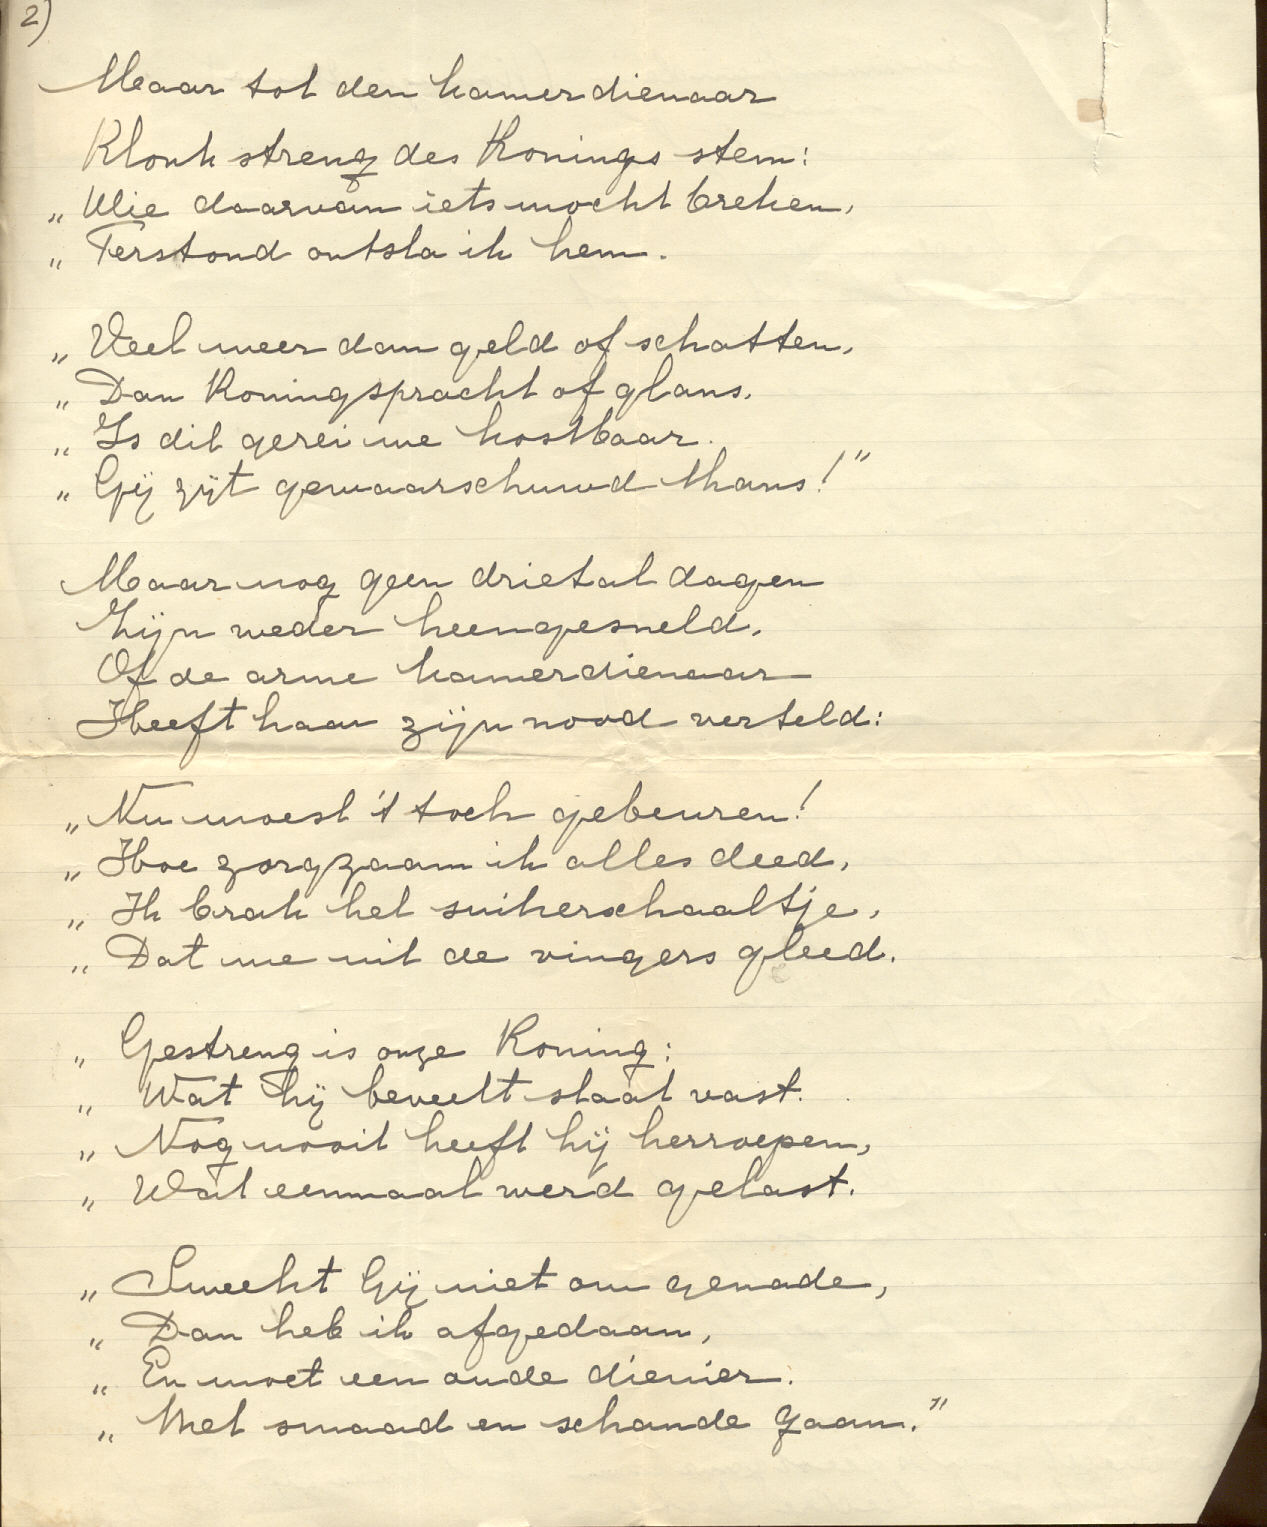 2)
Maar tot den kamerdienaar
Klonk streng des Konings stem:
„ Wie daarvan iets mocht breken,
„ Terstond ontsla ik hem.
„ Veel meer dan geld of schatten,
„ Dan Koningspracht of glans,
„ Is dit gerei me kostbaar.
„ Gij zijt gewaarschuwd thans!"
Maar nog geen drietal dagen
Zijn weder heengesneld,
Of de arme kamerdienaar
Heeft haar zijn nood verteld:
„ Nu moest 't toch gebeuren!
„ Hoe zorgzaam ik alles deed,
„ Ik brak het suikerschaaltje,
„ Dat me uit de vingers gleed.
„ Gestreng is onze Koning:
„ Wat hij beveelt staat vast.
„ Nog nooit heeft hij herroepen,
„ Wat eenmaal werd gelast.
„ Smeekt Gij niet om genade,
„ Dan heb ik afgedaan,
„ En moet een oude dienier.
„ Met smaad en schande gaan."